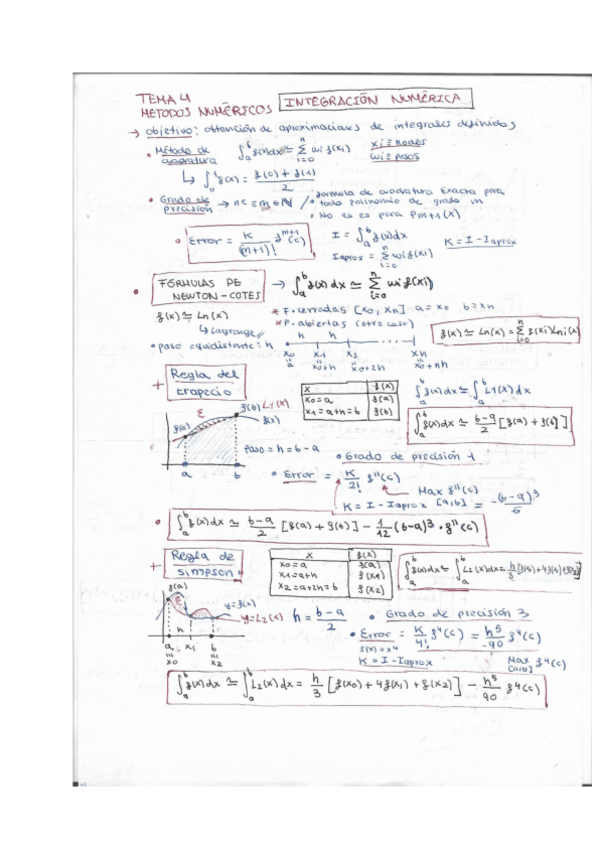 TEMA 4
MÉTODOS NUMÉRICOS INTEGRACIÓN NUMÉRICA
→ objetivo: obtención de aproximaciones de integrales definidas
• Método de cuadratura ∫_a^b f(x)dx ≃ Σ_{i=0}^n wi f(xi) xi ≡ nodos
wi ≡ pesos
↳ ∫_0^1 f(x) = (f(0) + f(1))/2
• Grado de precisión
• fórmula de cuadratura exacta para
todo polinomio de grado m
• No es es para Pm+1(x)
• Error = K/(m+1)! f^{m+1}(c) I = ∫_a^b f(x)dx
Iaprox = Σ_{i=0}^n wi f(xi) K = I - Iaprox
• FÓRMULAS DE NEWTON-COTES → ∫_a^b f(x)dx ≃ Σ_{i=0}^n wi f(xi)
f(x) ≃ Ln(x)
↳ Lagrange
* F. cerradas [x0, xn] a = x0 b = xn
* F. abiertas (otro caso)
f(x) ≃ Ln(x) = Σ_{i=0}^n f(xi) Lni(x)
• paso equidistante: h
h h
x0 x1 x2 xn
a x0+h x0+2h x0+nh
+ Regla del trapecio
x f(x)
x0 = a f(a)
x1 = a+h = b f(b)
∫_a^b f(x)dx ≃ ∫_a^b L1(x)dx
∫_a^b f(x)dx ≃ (b-a)/2 [f(a) + f(b)]
f(a) ε f(b) L1(x)
f(x)
a b
Paso = h = b - a
• Grado de precisión 1
• Error = K/2! f''(c)
Max f''(c)
[a,b]
K = I - Iaprox = -(b-a)^3/6
• ∫_a^b f(x)dx ≃ (b-a)/2 [f(a) + f(b)] - 1/12 (b-a)^3 · f''(c)
+ Regla de simpson
x f(x)
x0 = a f(a)
x1 = a+h f(x1)
x2 = a+2h = b f(x2)
∫_a^b f(x)dx ≃ ∫_a^b L2(x)dx = h/3
f(a)
y = f(x)
y = L2(x)
h
a x1 b
x0 x2
h = (b-a)/2
• Grado de precisión 3
• Error = K/4! f^4(c) = h^5/-90 f^4(c)
f(x) = x^4
K = I - Iaprox
Max f^4(c)
[a,b]
• ∫_a^b f(x)dx ≃ ∫_a^b L2(x)dx = h/3 [f(x0) + 4f(x1) + f(x2)] - h^5/90 f^4(c)